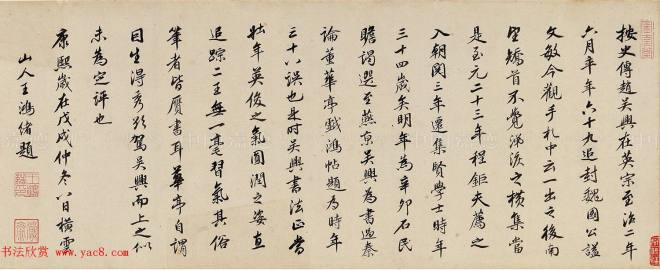 按史傳趙吳興在英宗至治二年
六月卒年六十九追封魏國公謚
文敏今觀手札中云一出之後南
望矯首不覺涕淚之横集當
是至元二十三年程鉅夫薦之
入朝閱三年還集賢學士時年
三十四歲矣明年為辛卯石民
瞻謁選至燕京吳興為書過秦
論董華亭戲鴻帖題為時年
三十八誤也是時吳興書法正當
壯年英俊之氣圓潤之姿直
追踪二王無一毫習氣其俗
筆者皆贗書耳華亭自謂
因生得秀欲駕吳興而上之似
未為定評也
康熙歲在戊戌仲冬八日橫雲
山人王鴻緒題
书法欣赏
www.yac8.com